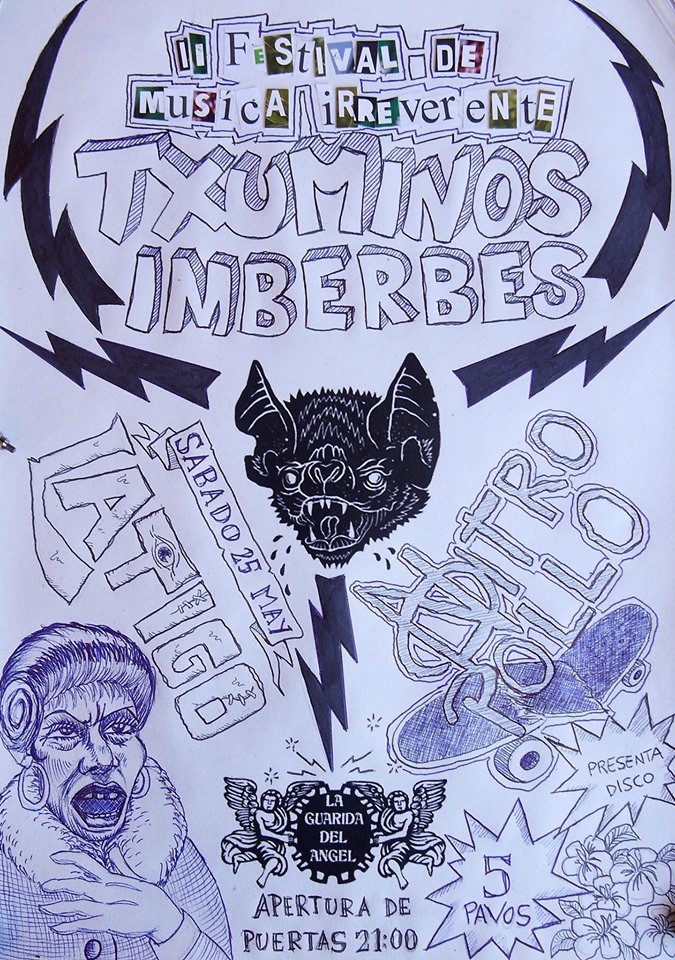 II FEStIVAL DE
MuSíCA iRREverENtE
TXUMINOS
IMBERBES
SABADO 25 MAY
LATIGO
ARBITRO
ROLLO
PRESENTA
DISCO
LA
GUARIDA
DEL
ANGEL
5
PAVOS
APERTURA DE
PUERTAS 21:00